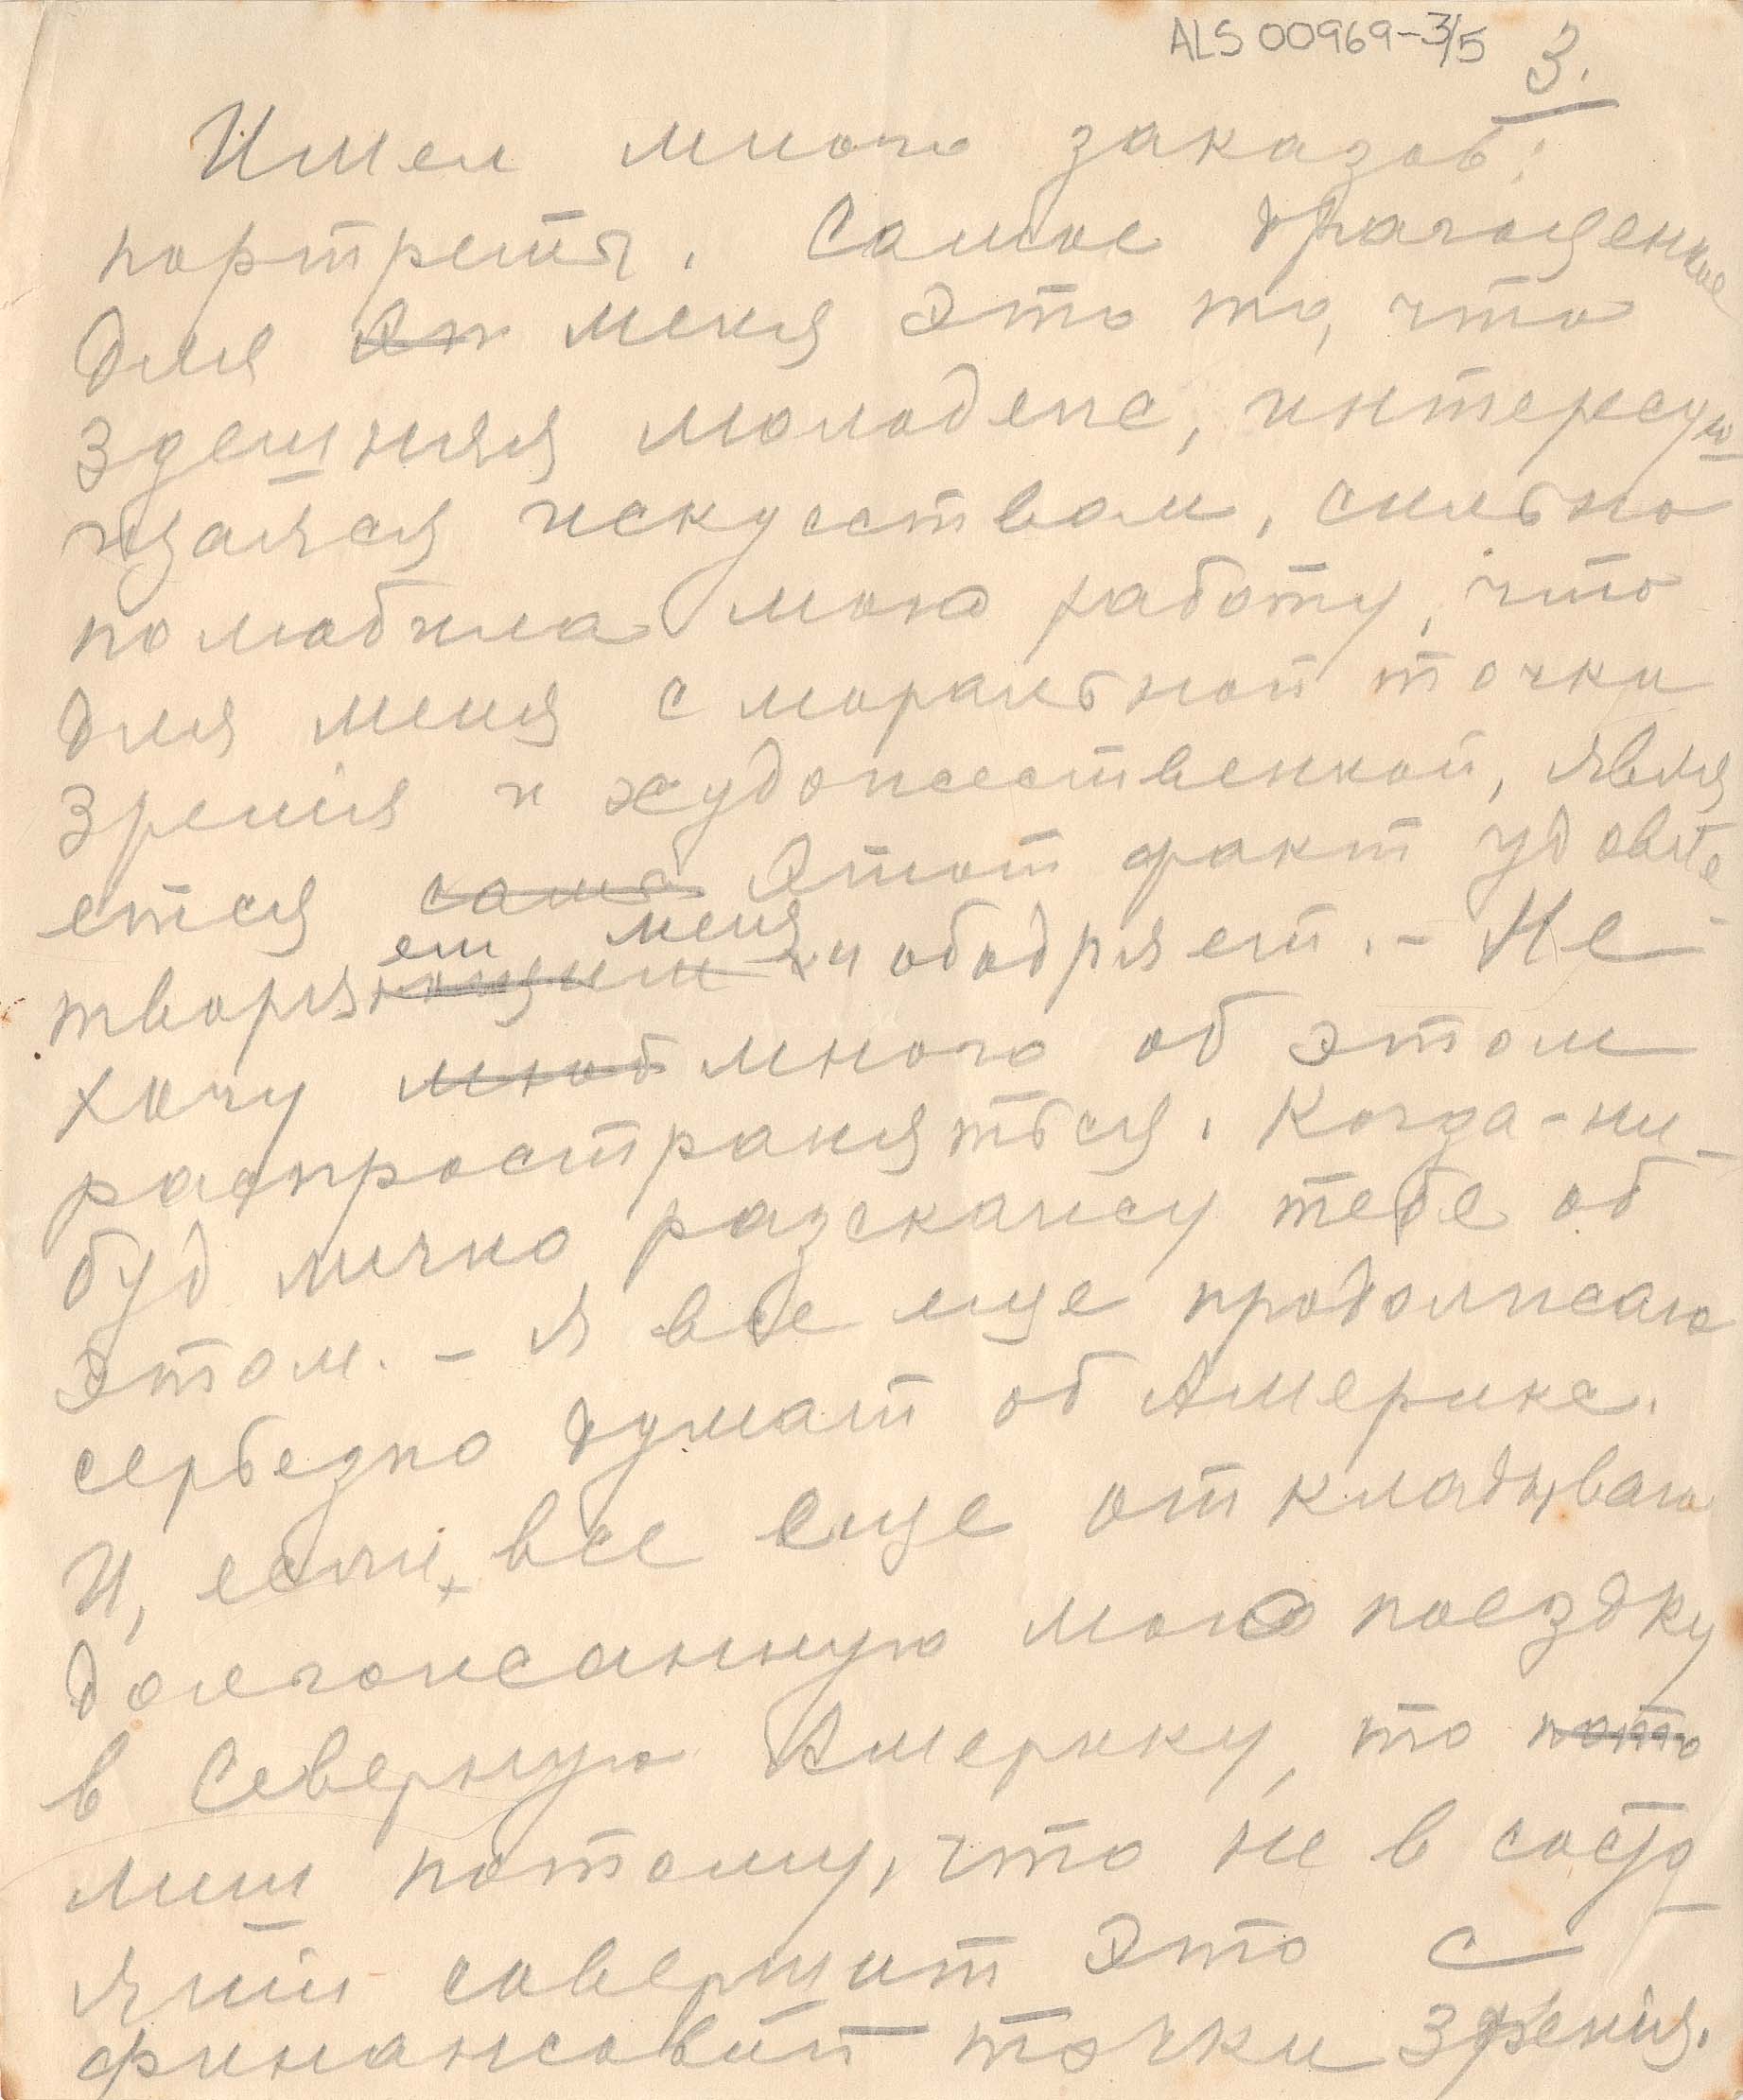 ALS 00969-3/5
3.
Имел много заказов:
портреты. Самое драгоценное
для меня это то, что
здешняя молодежс, интересую
щаяся искусством, сильно
полюбила мою работу, что
для меня с моральной точки
зренія и художественной, явля
ется Этот факт удовле
ет меня
творя и ободряет. - Не
хочу много об этом
распространяться. Когда-ни-
буд лично разскажу тебе об
этом. - Я все еще продолжаю
серьезно думат об Америке.
И, если, все еще откладываю
долгожсанную мою поездку
в Северную Америку, то
лиш потому, что не в состо
яніи совершит это с
финансовой точки зренія.